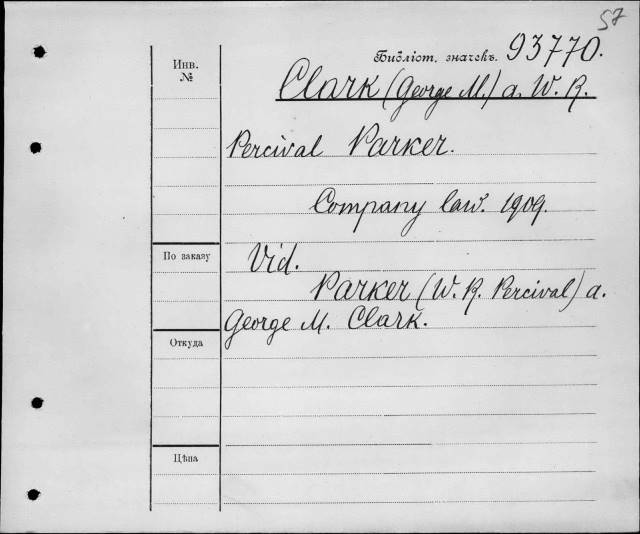 57
Инв.
№
Библіот. значекъ. 93770.
Clark (George M.) a. W. R.
Percival Parker.
Company law. 1909.
По заказу
Vid.
Parker (W. R. Percival) a.
George M. Clark.
Откуда
Цѣна